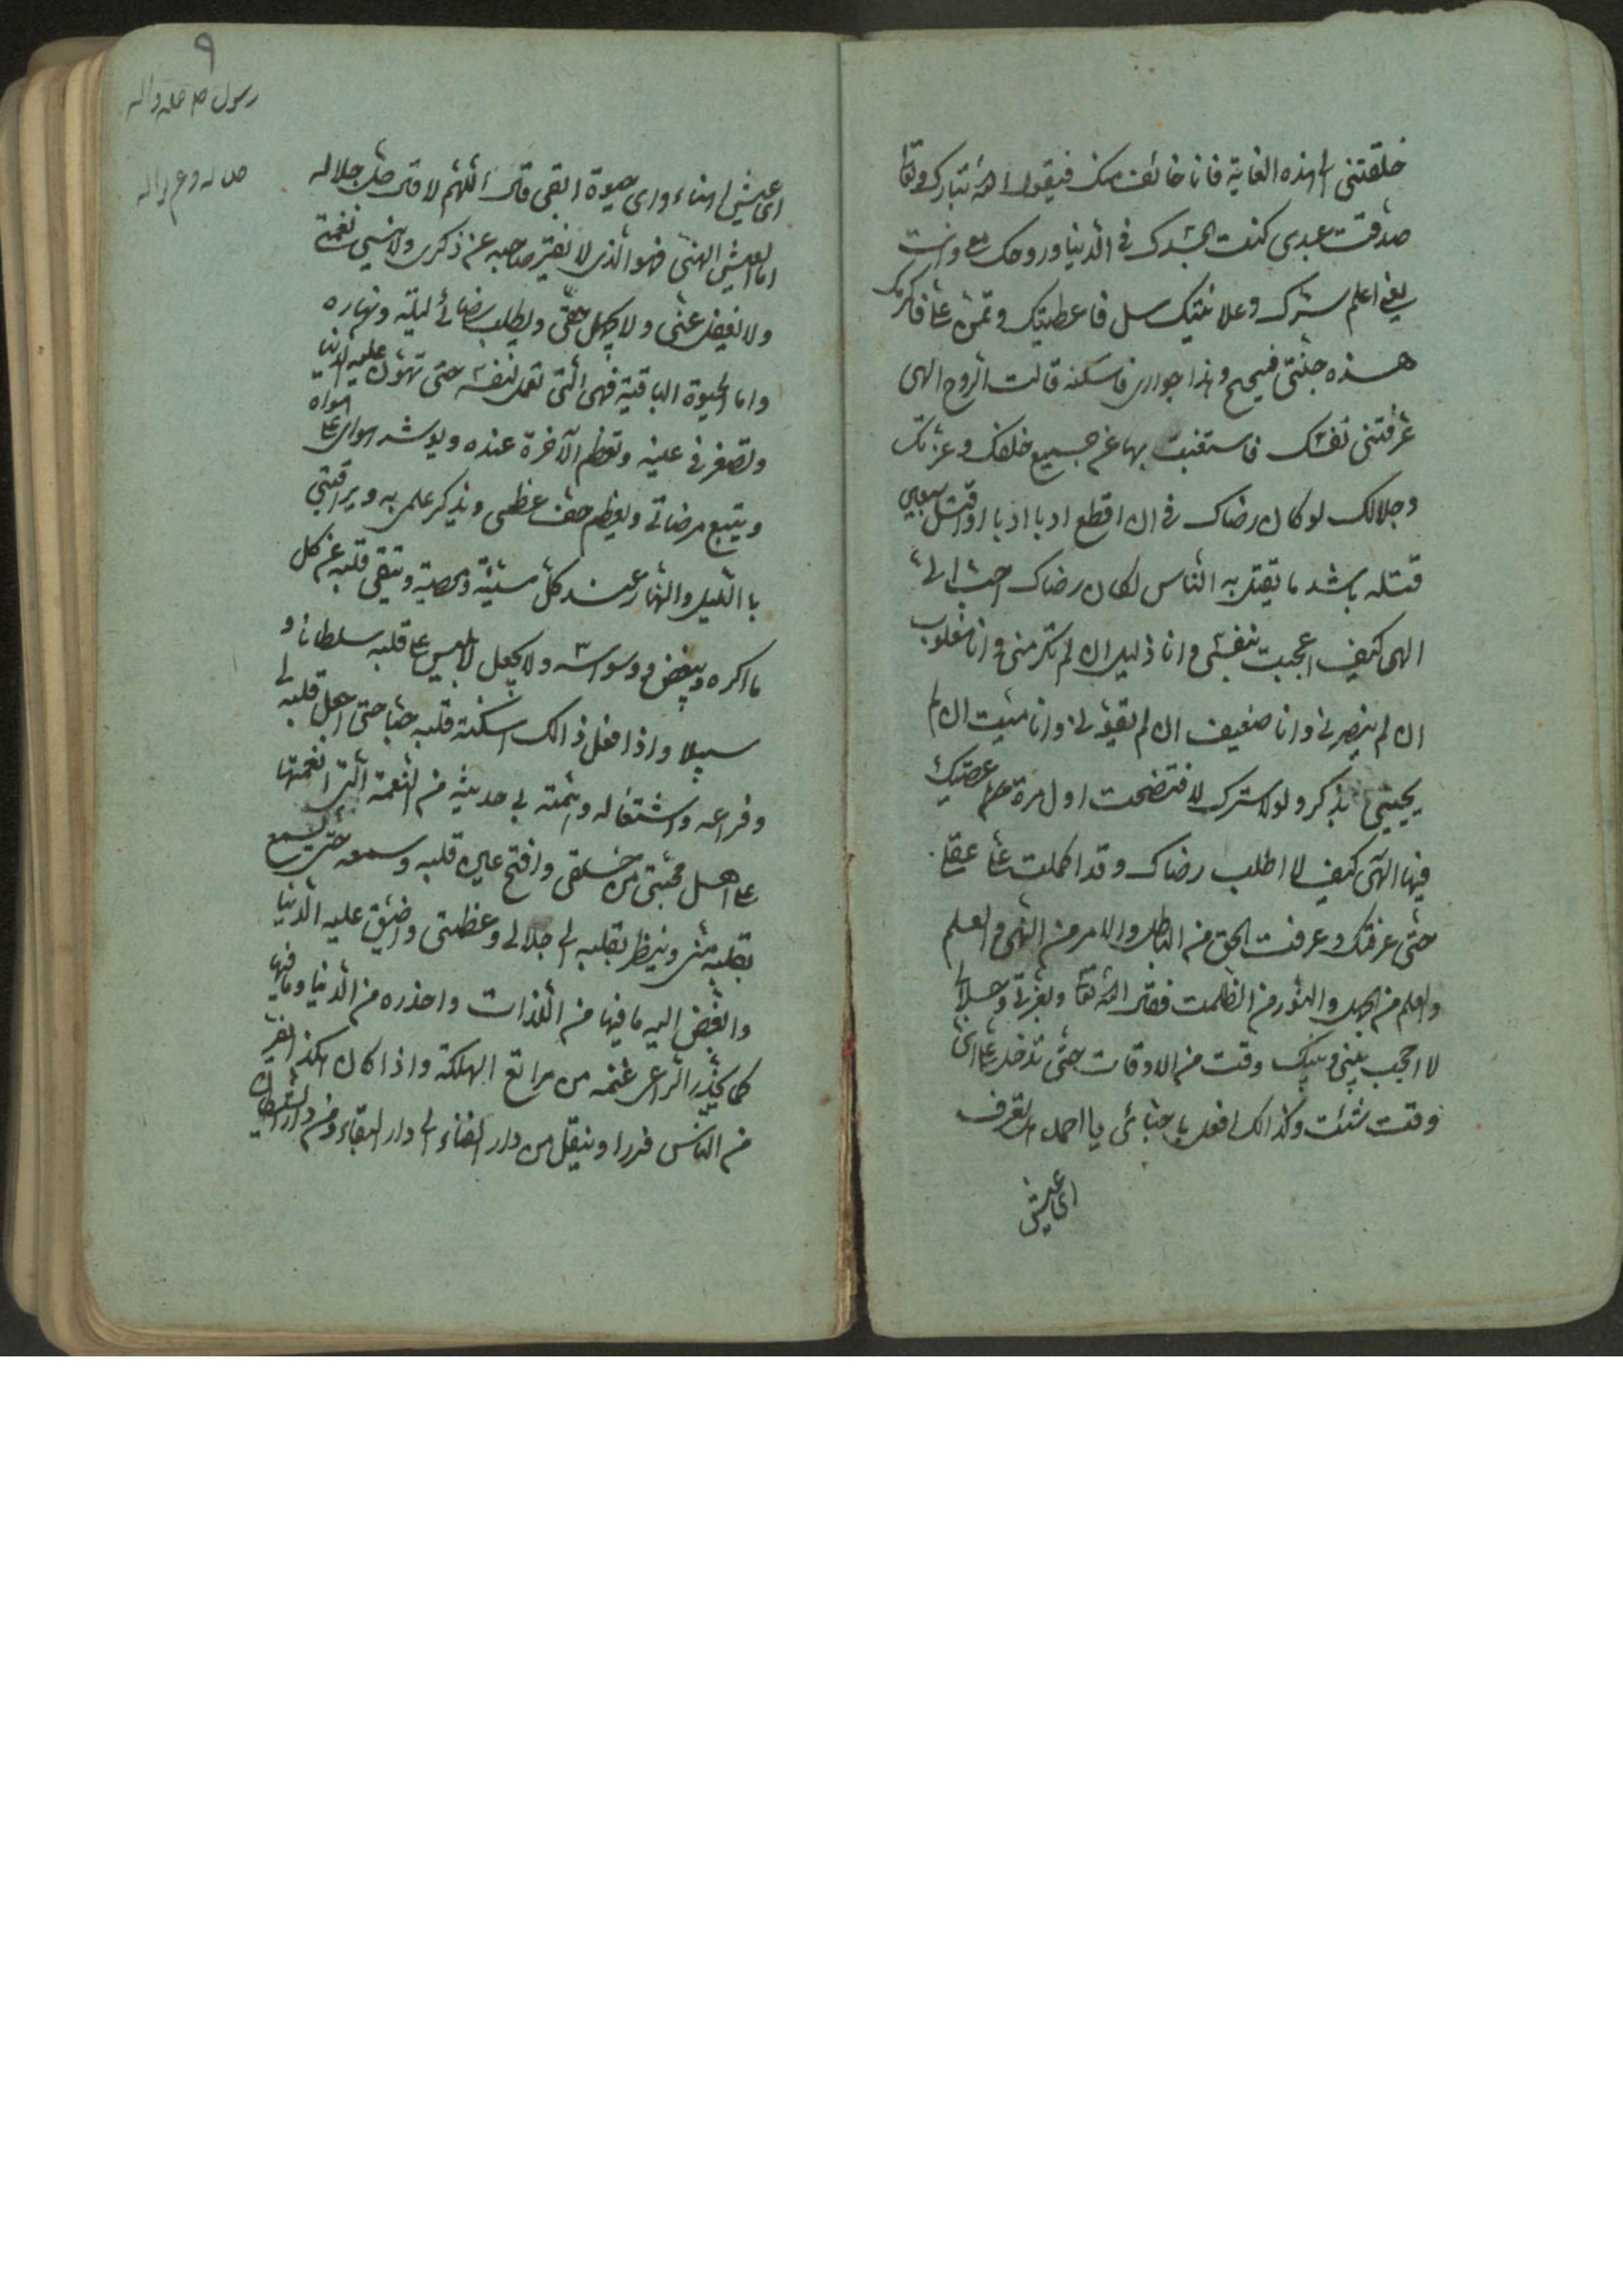 خلقتنی الی هذه الغایة فانا خائف منک فیقول الله تبارک و تعا
صدقت عبدی کنت بجسدک فی الدنیا وروحک معی وانت
بعینی اعلم سترک وعلانیتک سل فاعطیتک وتمن علی فاکرمک
هذه جنتی فبحبح وهذا جواری فاسکنه قالت الروح الهی
عرفتنی نفسک فاستغنیت بها عن جمیع خلقک وعزتک
وجلالک لو کان رضاک فی ان اقطع اربا اربا او اقتل سبعین
قتلة باشد ما یقتل به الناس لکان رضاک احب الی
الهی کیف اعجبت بنفسی وانا ذلیل ان لم تکرمنی وانا مغلوب
ان لم ینصرنی وانا ضعیف ان لم تقونی وانا میت ان لم
یحیینی بذکر ولولا سترک لافتضحت اول مرة عصیتک
فیها الهی کیف لا اطلب رضاک وقد اکملت علی عقلی
حتی عرفتک وعرفت الحق من الباطل والامر من النهی والعلم
والعلم من الجهل والنور من الظلمت فقال الله تعا وبعزتی وجلالی
لا احجب بینی وبینک وقت من الاوقات حتی تدخل علی ای
وقت شئت وکذالک افعل باحبائی یا احمد اتعرف
ای عیش
٩
رسول
ای عیش اهناء وای حیوة ابقی قال اللهم لا قال جل جلاله
اما العیش الهنی فهو الذی لا یفتر صاحبه عن ذکری ولا ینسی نعمتی
ولا یغفل عنی ولا یجهل حقی ویطلب رضائی لیله ونهاره
واما الحیوة الباقیة فهی التی تعمل لنفسه حتی تهون علیه الدنیا
وتصغر فی عینه وتعظم الآخرة عنده ویوثر هوای علی هواه
ویتبع مرضاتی ویعظم حق عظمی ویذکر علمی به ویراقبنی
با اللیل والنهار عند کل سیئة ومعصیة وینقی قلبه عن کل
ما اکره ویبغض وسوسه ولا یجعل لابلیس علی قلبه سلطانا و
سبیلا واذا فعل ذالک اسکنة قلبه حبا حتی اجعل قلبه لی
وفراغه واشتغاله وهمته لی حدیثه من النعمة التی انعمتها
علی اهل محبتی من خلقی وافتح عین قلبه وسمعه حتی یسمع
بقلبه منی وینظر بقلبه الی جلالی وعظمتی واضیق علیه الدنیا
وابغض الیه ما فیها من اللذات واحذره من الدنیا وما فیها
کما یحذر الراعی غنمه من مراتع الهلکة واذا کان هکذا یفر
من الناس فررا وینقل من دار الفناء الی دار البقاء ومن دار الشیطان